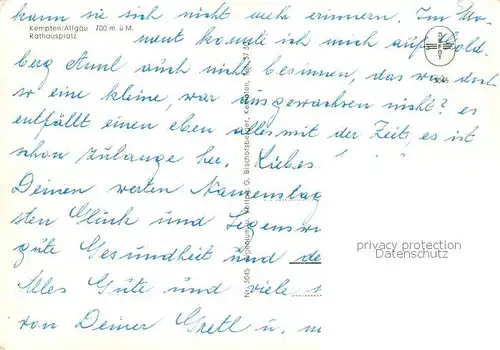 kann sie sich nicht mehr erinnern. Im Mo-
Kempten/Allgäu 700 m ü M.
Rathausplatz
ment konnte ich mich auf Gold-
berg Anni auch nicht besinnen, das war doch
so eine kleine, war ausgewachsen nicht? es
entfällt einen eben alles mit der Zeit, es ist
schon zulange her. Liebes
Deinen werten Namenstag
sten Glück und Segenswü
gute Gesundheit und de
Alles Gute und viele
von Deiner Gretl u. m
Nr. 5045
Verlag G. Bischofsberger, Kempten,
privacy protection
Datenschutz